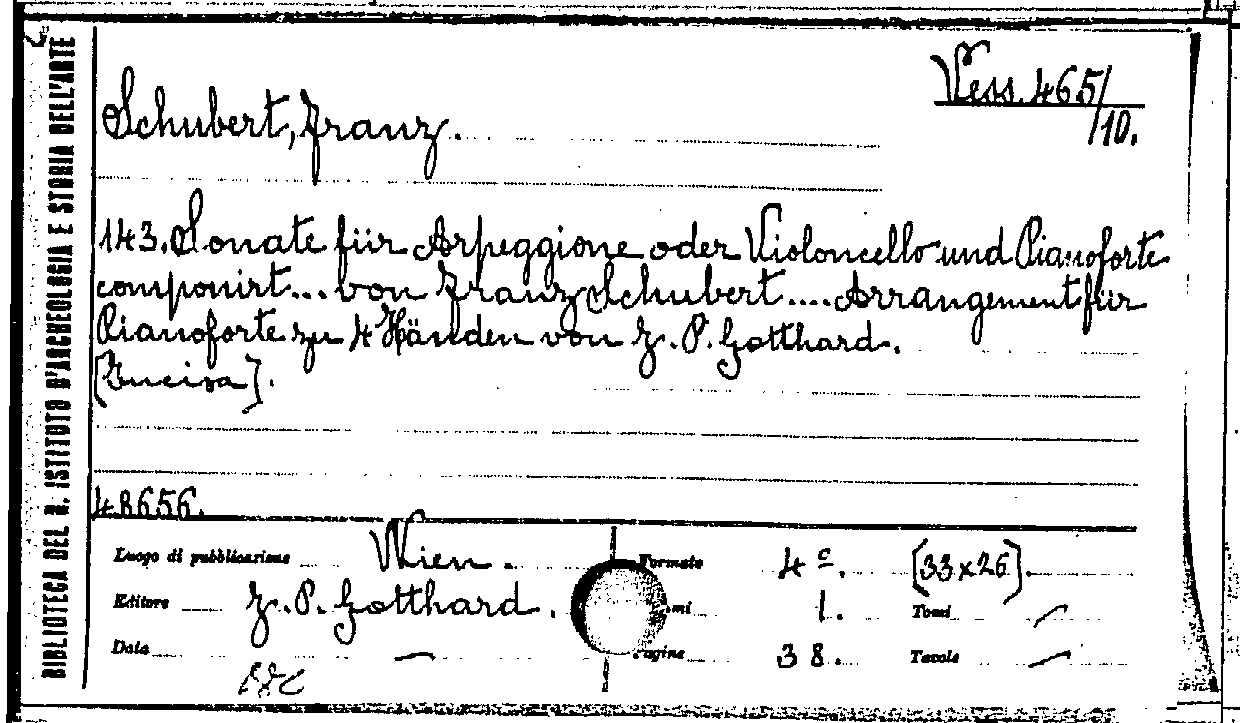 BIBLIOTECA DEL R. ISTITUTO D'ARCHEOLOGIA E STORIA DELL'ARTE
Vess. 465/
/10.
Schubert, Franz.
143. Sonate für Arpeggione oder Violoncello und Pianoforte
componirt... von Franz Schubert.... Arrangement für
Pianoforte zu 4 Händen von J. P. Gotthard.
[Incisa].
48656.
Luogo di pubblicazione Wien.
Formato 4º. [33x26].
Editore J. P. Gotthard.
1. Tomi —
Data —
Pagine 38. Tavole —